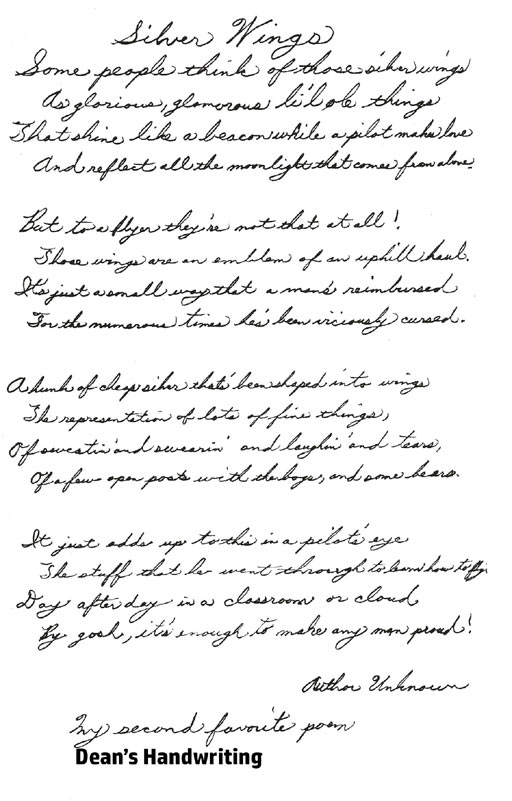 Silver Wings
Some people think of those silver wings
As glorious, glamorous li'l ole things
That shine like a beacon while a pilot makes love
And reflect all the moonlight that comes from above.
But to a flyer they're not that at all!
Those wings are an emblem of an uphill haul.
It's just a small way that a man's reimbursed
For the numerous times he's been viciously cursed.
A hunk of cheap silver that's been shaped into wings
The representation of lots of fine things,
Of sweatin' and swearin' and laughin' and tears,
Of a few open posts with the boys, and some beers.
It just adds up to this in a pilot's eye
The stuff that he went through to learn how to fly.
Day after day in a classroom or cloud
By gosh, it's enough to make any man proud!
Author Unknown
My second favorite poem
Dean's Handwriting